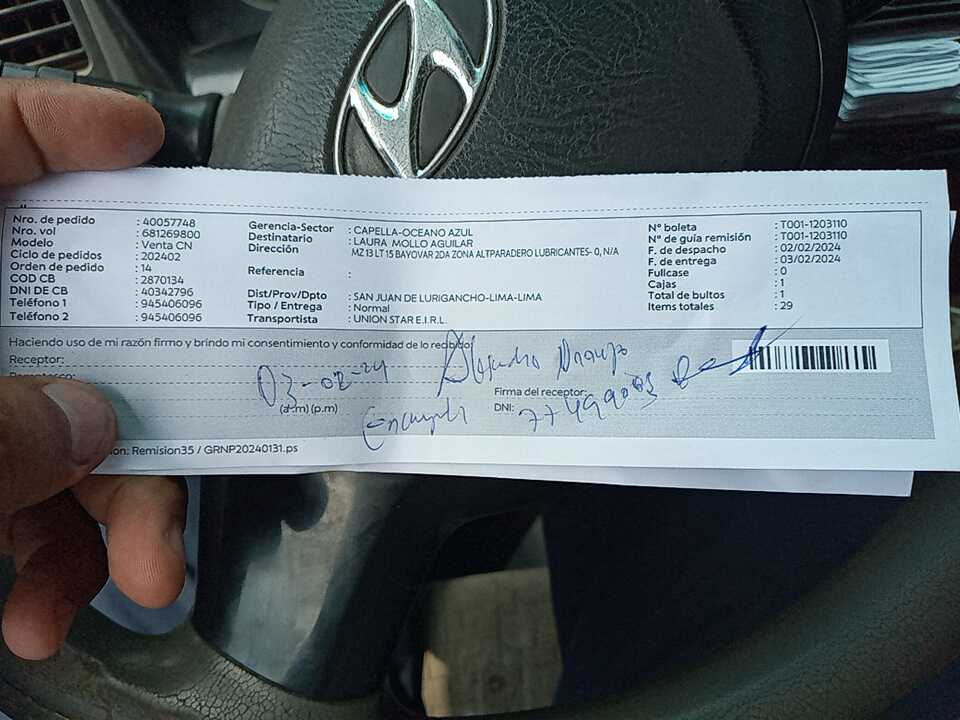 Nro. de pedido : 40057748
Nro. vol : 681269800
Modelo : Venta CN
Ciclo de pedidos : 202402
Orden de pedido : 14
COD CB : 2870134
DNI DE CB : 40342796
Teléfono 1 : 945406096
Teléfono 2 : 945406096
Gerencia-Sector : CAPELLA-OCEANO AZUL
Destinatario : LAURA MOLLO AGUILAR
Dirección MZ 13 LT 15 BAYOVAR 2DA ZONA ALTPARADERO LUBRICANTES- 0, N/A
Referencia :
Dist/Prov/Dpto : SAN JUAN DE LURIGANCHO-LIMA-LIMA
Tipo / Entrega : Normal
Transportista : UNION STAR E.I.R.L.
N° boleta : T001-1203110
N° de guía remisión : T001-1203110
F. de despacho : 02/02/2024
F. de entrega : 03/02/2024
Fullcase : 0
Cajas : 1
Total de bultos : 1
Items totales : 29
Haciendo uso de mi razón firmo y brindo mi consentimiento y conformidad de lo recibido:
Receptor:
03-02-24
(a.m) (p.m)
Firma del receptor:
DNI:
Remision35 / GRNP20240131.ps